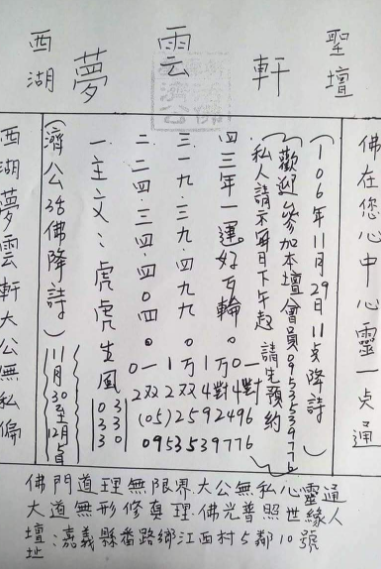 西湖夢雲軒聖壇
佛在您心中心靈一奌通
(106年11月29日11奌降詩)
(歡迎參加本壇會員0953539776)
私人請示每日下午起請先預約
四三年一運好互輪。
三一九.三九.四九九。
二二四.三四.四0四。
一主文：虎虎生風
(05)2592496
0953539776
(濟公活佛降詩)
11月30至12月5日
西湖夢雲軒大公無私偏
佛門道理無限界大公無私心靈通
大道無形修真理.佛光普照世緣人
壇址:嘉義縣番路鄉江西村5鄰10號